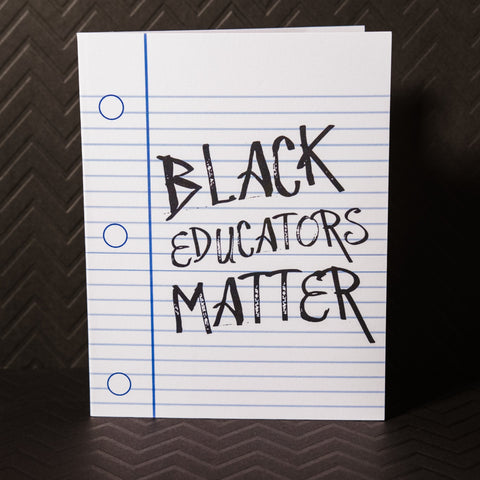 BLACK
EDUCATORS
MATTER